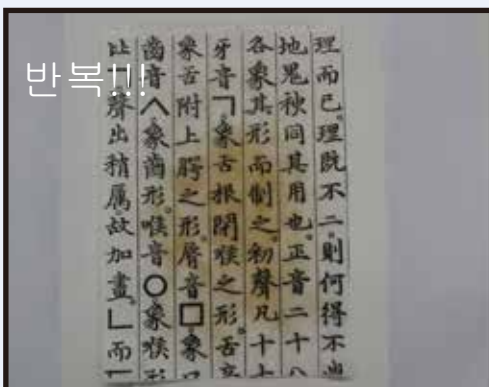 반복!!!
理而已。理既不二。則何得不
地鬼神同其用也。正音二十八
各象其形而制之。初聲凡十
牙音ㄱ。象舌根閉喉之形。舌音
象舌附上腭之形。脣音ㅁ。象口
齒音ㅅ。象齒形。喉音ㅇ。象喉形
比 聲出稍厲。故加畫。ㄴ而